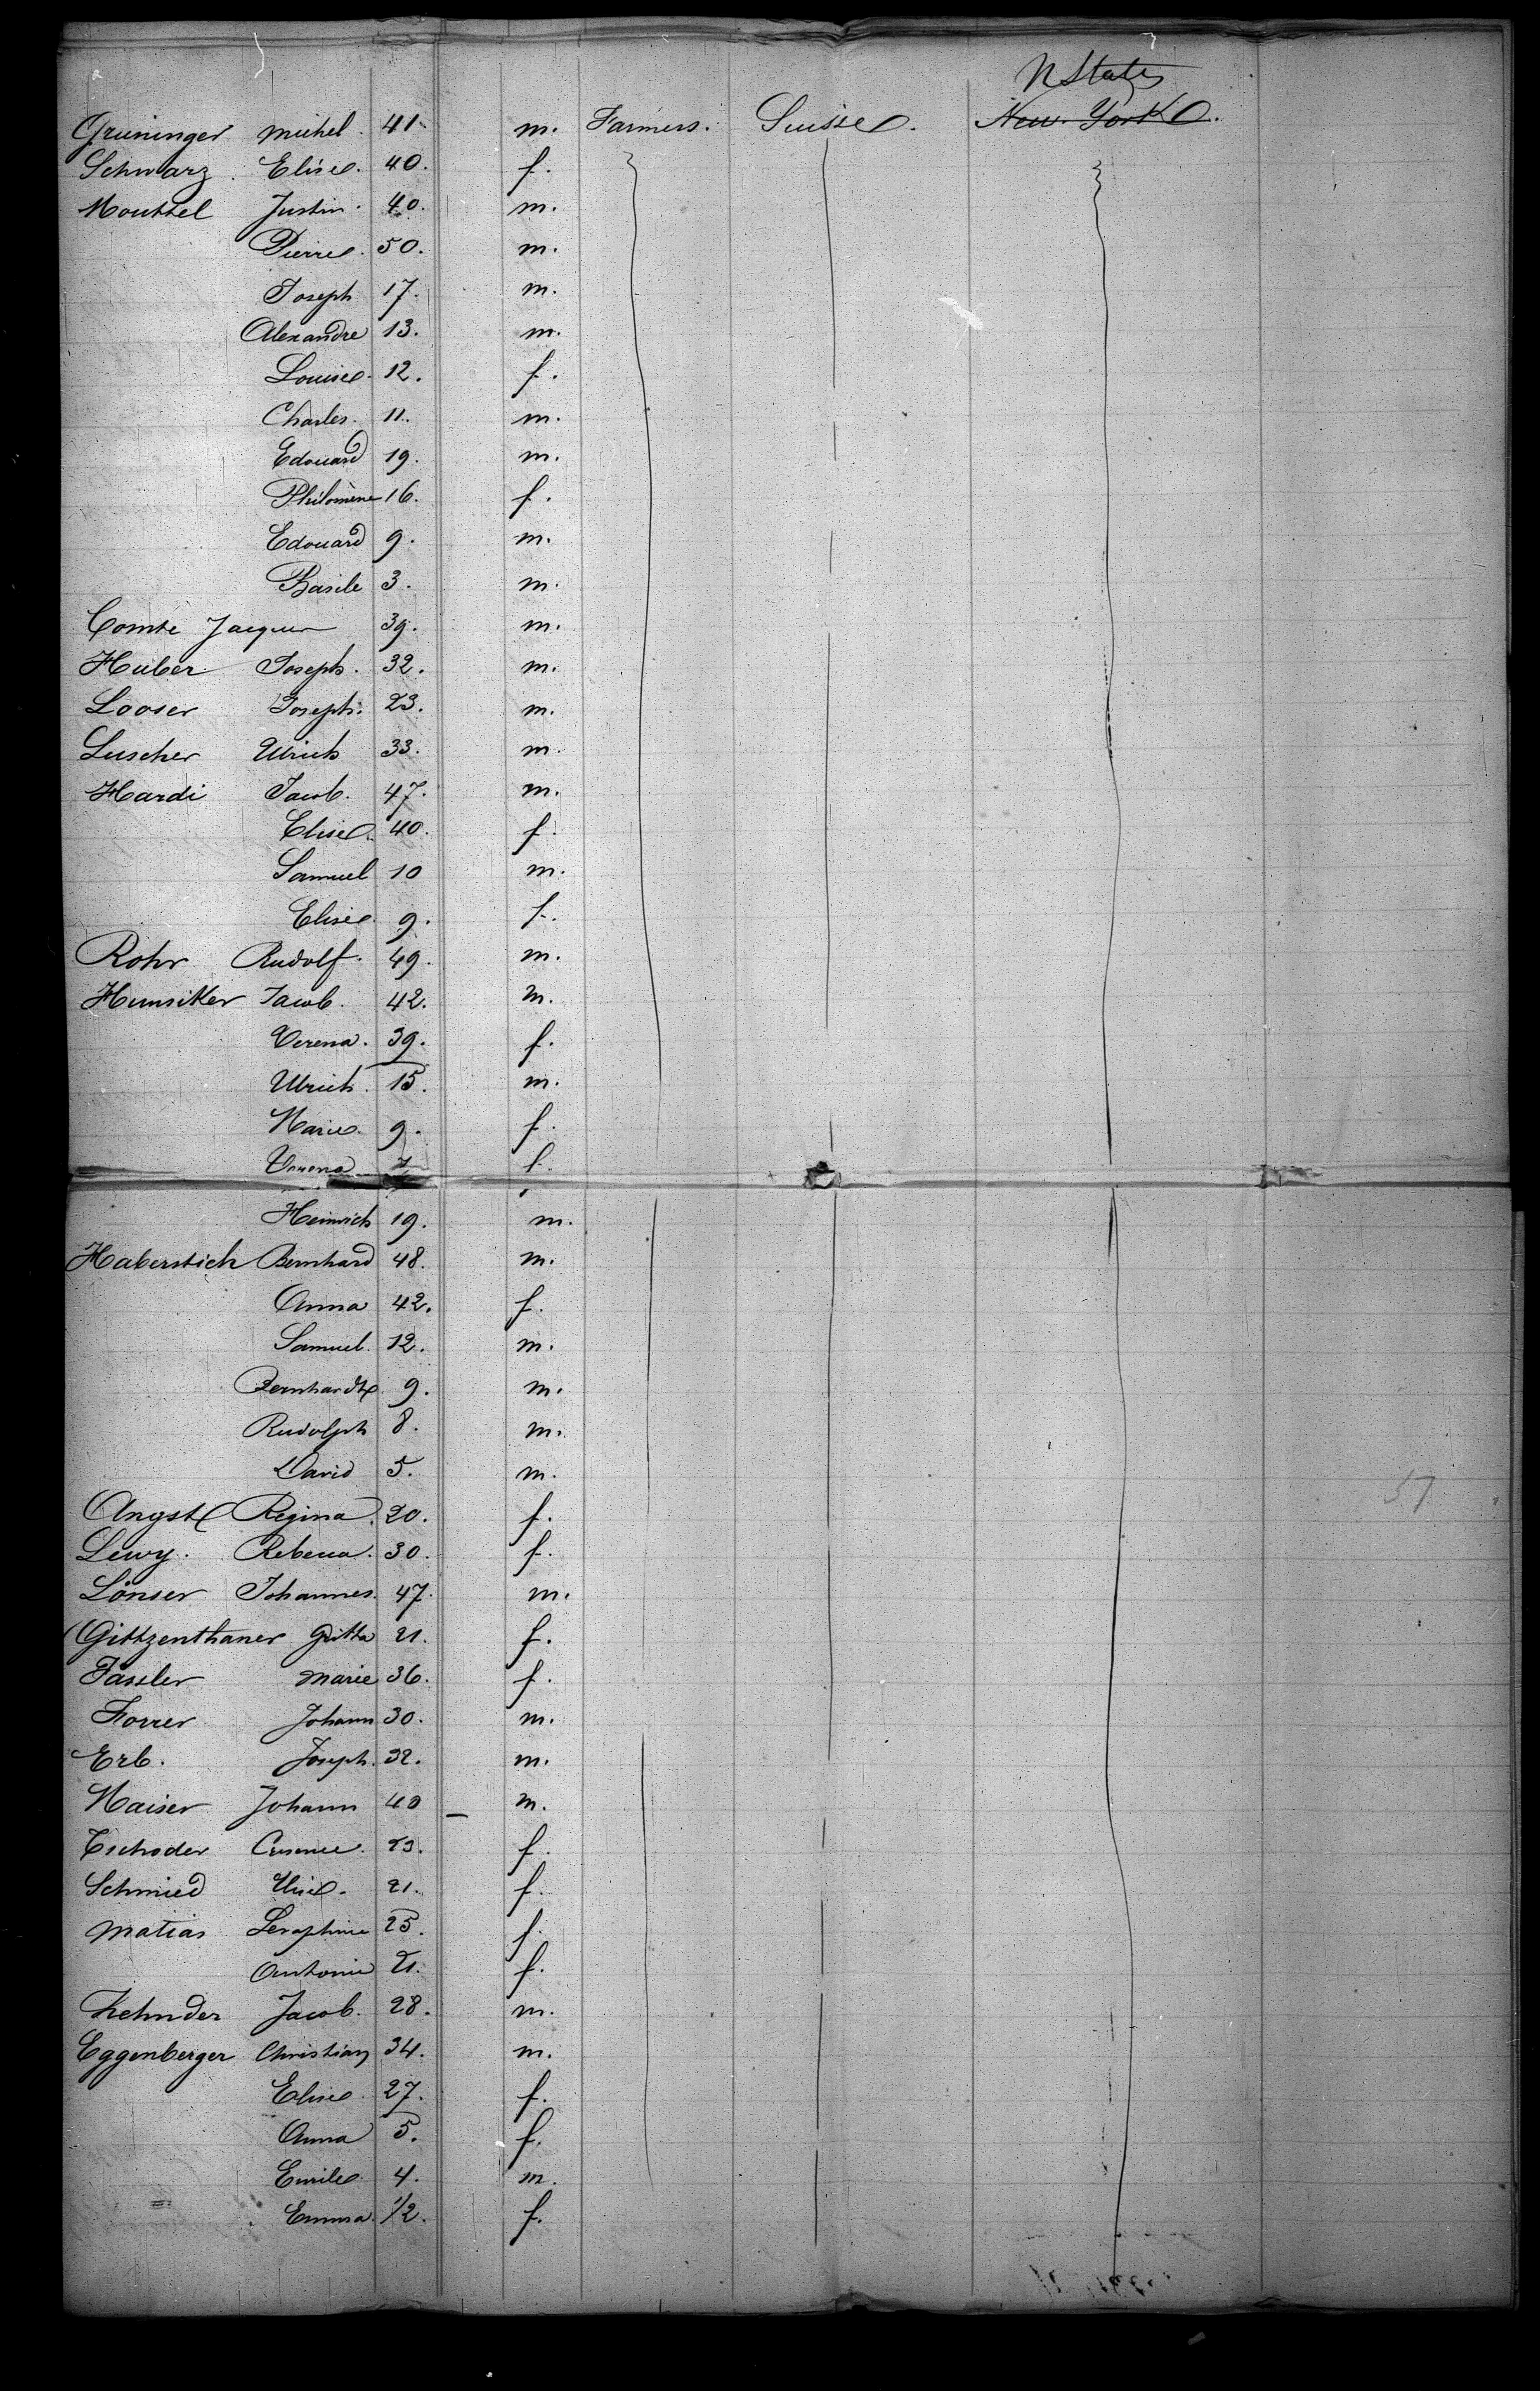 U States
Gruninger michel. 41. m. Farmers. Suisse. New York.
Schwarz. Elise. 40. f.
Mouttel Justin. 40. m.
Pierre. 50. m.
Joseph 17. m.
Alexandre 13. m.
Louise. 12. f.
Charles. 11. m.
Edouard 19. m.
Philomène 16. f.
Edouard 9. m.
Basile 3. m.
Comte Jacques 39. m.
Huber Joseph. 32. m.
Looser Joseph. 23. m.
Luscher Ulrich 33. m.
Hardi Jacob. 47. m.
Elise. 40. f.
Samuel 10 m.
Elise 9. f.
Rohr Rudolf. 49. m.
Hunsiker Jacob. 42. m.
Verena. 39. f.
Ulrich. 15. m.
Marie. 9. f.
Verena 7 f.
Heinrich 19. m.
Haberstich Bernhard 48. m.
Anna 42. f.
Samuel. 12. m.
Bernhardt 9. m.
Rudolph 8. m.
David 5. m.
Angst Regina. 20. f.
Lewy. Rebecca. 30. f.
Lönser Johannes. 47. m.
Gittzenthaner Gritta 21. f.
Fässler marie 36. f.
Forrer Johann 30. m.
Erb. Joseph. 32. m.
Maiser Johann 40 — m.
Tschoder 23. f.
Schmied Elise. 21. f.
Matias Seraphine 25. f.
Antonie 21. f.
Zehnder Jacob. 28. m.
Eggenberger Christian 34. m.
Elise 27. f.
Anna 5. f.
Emile 4. m.
Emma. 1/2. f.
57